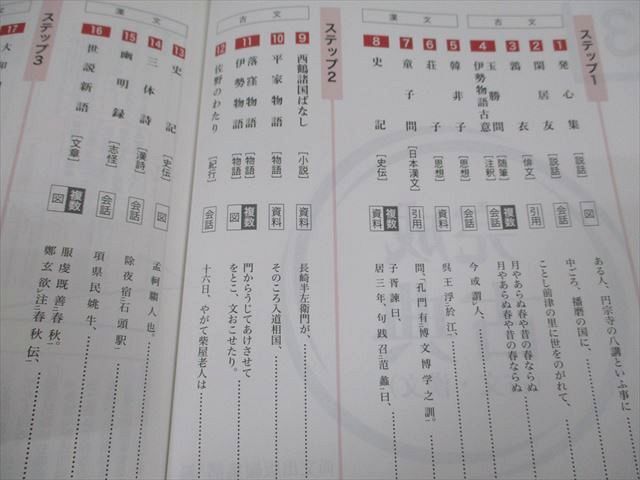 ステップ1
古文
1 発心集 [説話] 図 ある人、円宗寺の八講といふ事に
2 閑居友 [説話] 会話 中ごろ、播磨の国に、
3 鶉衣 [俳文] 引用 ことし前津の里に世をのがれて、
4 玉勝間 [随筆] 複数 会話 月やあらぬ春や昔の春ならぬ
伊勢物語古意 [注釈] 月やあらぬ春や昔の春ならぬ
漢文
5 韓非子 [思想] 会話 今或謂人、
6 荘子 [思想] 会話 呉王浮於江、
7 童子問 [日本漢文] 引用 問、「孔門有博文博学之訓。
8 史記 [史伝] 複数 資料 子胥諫曰、
居三年、句践召范蠡曰、
ステップ2
古文
9 西鶴諸国ばなし [小説] 資料 長崎半左衛門が、
10 平家物語 [物語] 資料 そのころ入道相国、
11 落窪物語 [物語] 複数 図 門からうじてあけさせて
伊勢物語 [物語] をとこ、文おこせたり。
12 佐野のわたり [紀行] 会話 十六日、やがて柴屋老人は
漢文
13 史記 [史伝] 会話 孟軻騶人也。
14 三体詩 [漢詩] 図 除夜宿石頭駅
15 幽明録 [志怪] 会話 項県民姚牛、
16 世説新語 [文章] 複数 図 服虔既善春秋、
鄭玄欲注春秋伝、
ステップ3
17